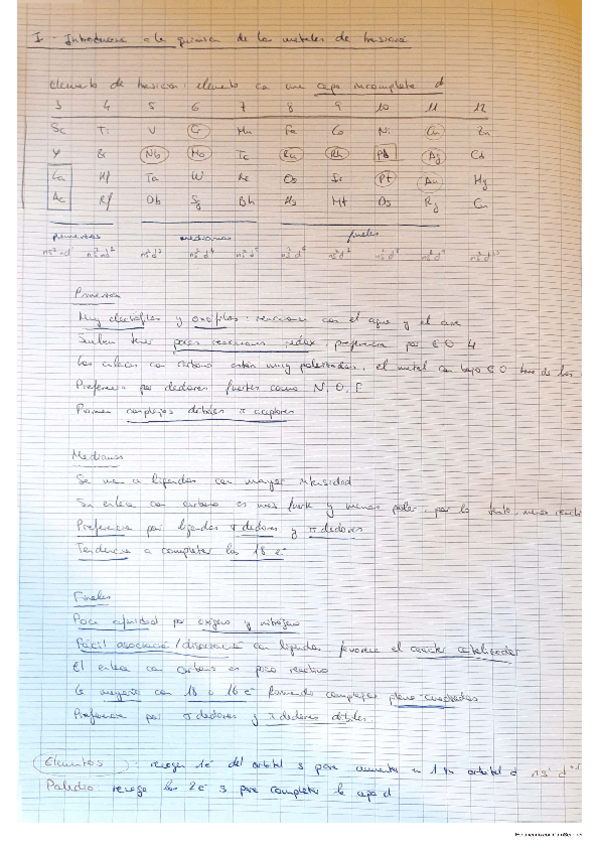 I - Introducción a la química de los metales de transición
elemento de transición: elemento con una capa incompleta d
3 4 5 6 7 8 9 10 11 12
Sc Ti V Cr Mn Fe Co Ni Cu Zn
Y Zr Nb Mo Tc Ru Rh Pd Ag Cd
La Hf Ta W Re Os Ir Pt Au Hg
Ac Rf Db Sg Bh Hs Mt Ds Rg Cn
primeros medianos finales
Primeros
Muy electrófilos y oxófilos: reaccionan con el agua y el aire
Suelen tener pocas reacciones redox, preferencia por EO 4
Los enlaces con carbono están muy polarizados, el metal con bajo EO
Preferencia por dadores fuertes como N, O, F
Forman complejos débiles π aceptores
Medianos
Se unen a ligandos con mayor intensidad
Su enlace con carbono es más fuerte y menos polar, por lo tanto, menos
Preferencia por ligandos σ dadores y π dadores
Tendencia a completar los 18 e⁻
Finales
Poca afinidad por oxígeno y nitrógeno
Fácil asociación/disociación con ligandos favorece el carácter catalizador
El enlace con carbono es poco reactivo
La mayoría con 18 o 16 e⁻ formando complejos plano-cuadrados
Preferencia por σ dadores y π dadores débiles.
Elementos: recogen 1e⁻ del orbital s para aumentar en 1 su orbital d
Paladio: recoge los 2e⁻ s para completar la capa d